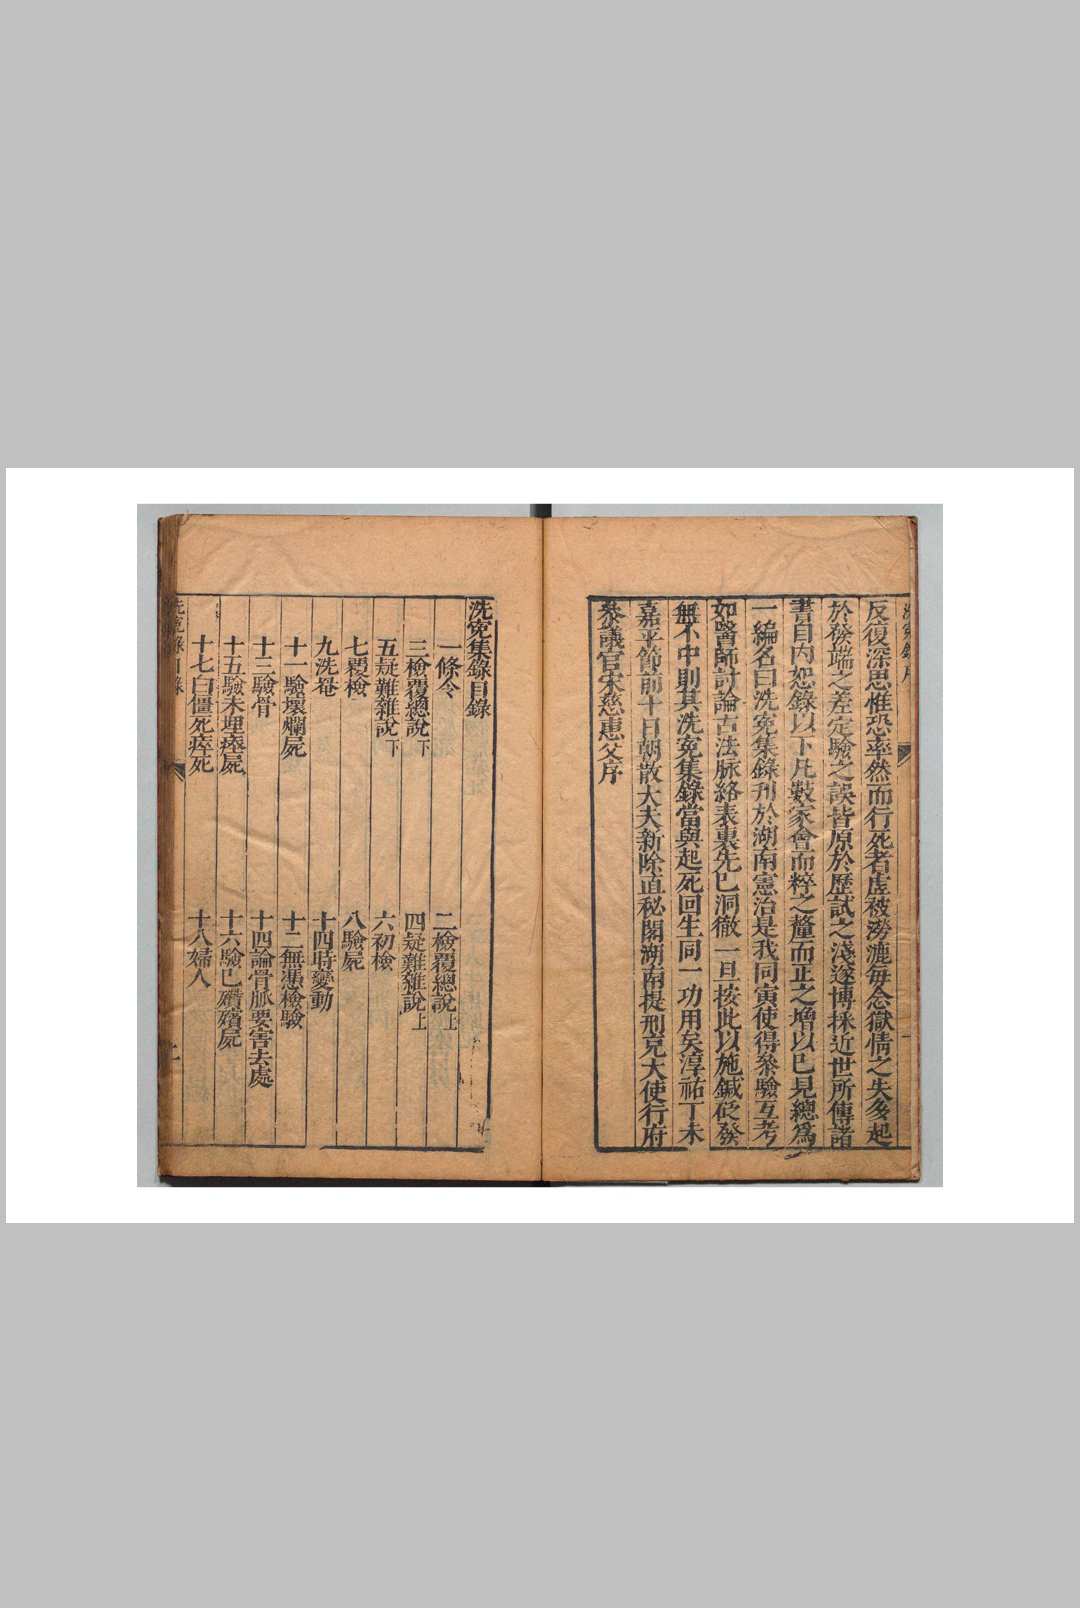 洗冤錄序
反復深思惟恐率然而行死者虛被澇漉每念獄情之失多起
於發端之差定驗之誤皆原於歷試之淺遂博採近世所傳諸
書自內恕錄以下凡數家會而粹之釐而正之增以己見總爲
一編名曰洗冤集錄刊於湖南憲治是我同寅使得參驗互考
如醫師討論古法脉絡表裏先已洞徹一旦按此以施鍼砭發
無不中則其洗冤集錄當與起死回生同一功用矣淳祐丁未
嘉平節前十日朝散大夫新除直秘閣湖南提刑充大使行府
參議官宋慈惠父序
洗冤集錄目錄
一條令
二檢覆總說上
三檢覆總說下
四疑難雜說上
五疑難雜說下
六初檢
七覆檢
八驗屍
九洗罨
十四時變動
十一驗壞爛屍
十二無憑檢驗
十三驗骨
十四論骨脈要害去處
十五驗未埋瘞屍
十六驗已殯殯屍
十七白僵死瘁死
十八婦人
洗冤錄目錄